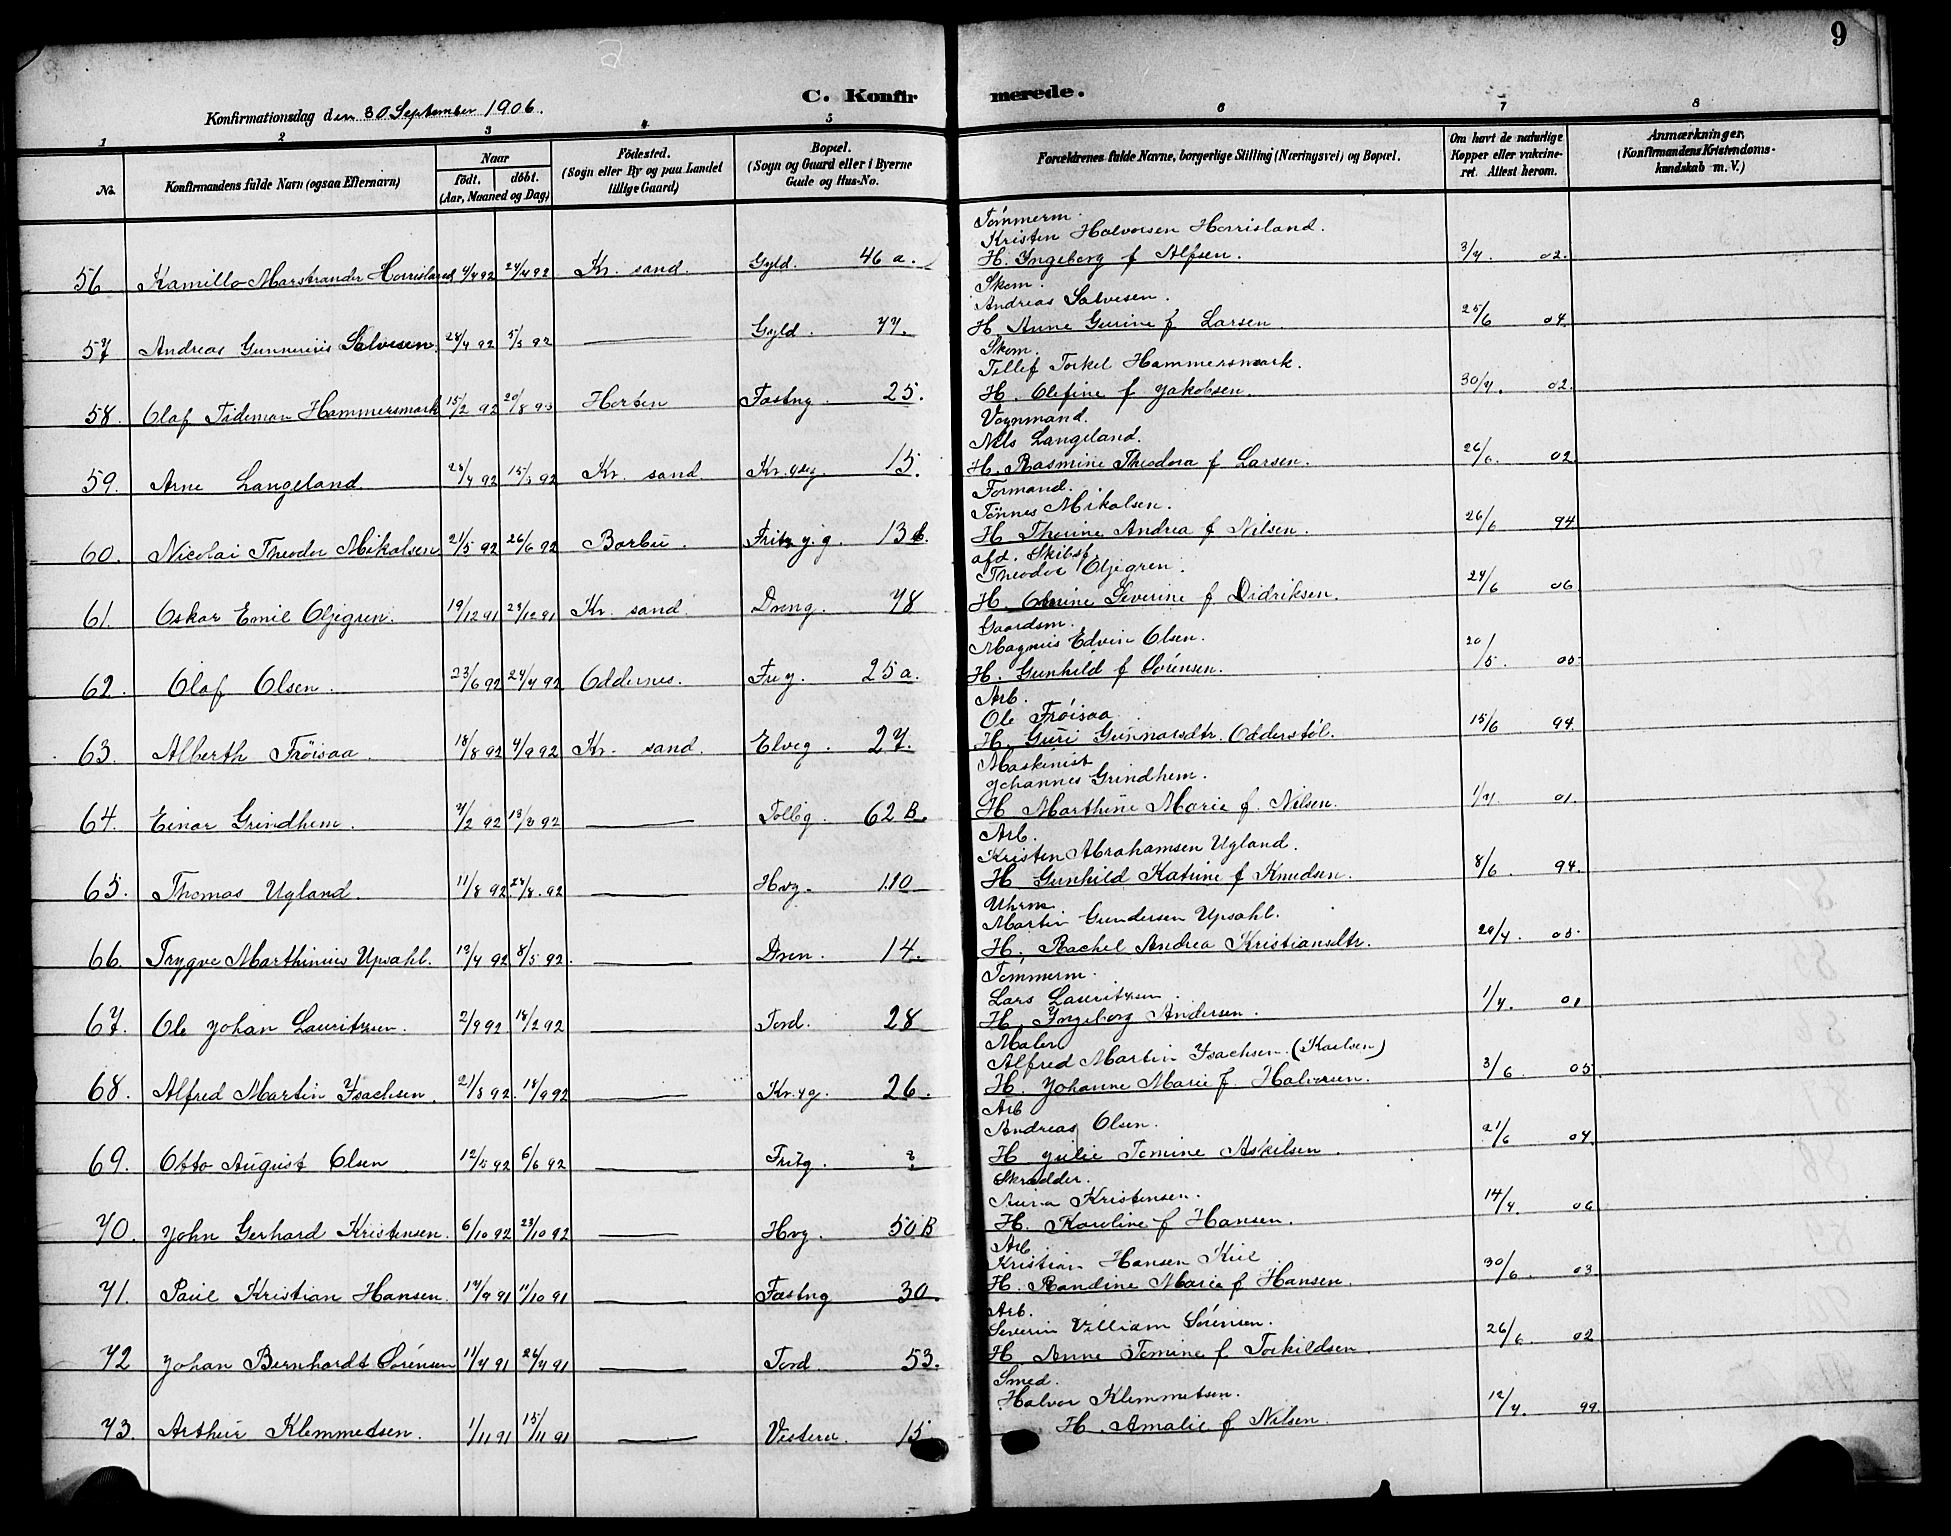 9
C. Konfirmerede.
Konfirmationsdag den 30 September 1906.
1 2 3 4 5 6 7 8
No. Konfirmandens fulde Navn (ogsaa Efternavn) Naar født. døbt. (Aar, Maaned og Dag) Fødested. (Sogn eller By og paa Landet tillige Gaard) Bopæl. (Sogn og Gaard eller i Byerne Gade og Hus-No. Forældrenes fulde Navne, borgerlige Stilling (Næringsvei) og Bopæl. Om havt de naturlige Kopper eller vakcineret. Attest herom. Anmærkninger. (Konfirmandens Kristendomskundskab m. V.)
Tømmerm.
Kristen Halvorsen Horrisland.
56 Kamillo Marstrander Horrisland 4/4 92 24/4 92 Kr. sand. Gyld. 46 a. H. Ingeborg f Alfsen. 3/7. 02.
Skom.
Andreas Salvesen.
57 Andreas Gunnerius Salvesen. 5/5 92 Gyld. 77. H. Anne Gurine f Larsen. 25/6 04.
Skom.
Tellef Torkel Hammersmark.
58. Olaf Tideman Hammersmark 15/2 92 Horten Fæstng. 25. H. Olefine f Jakobsen. 30/7. 02.
Vognmand.
Nils Langeland.
59. Arne Langeland 15/5 92 Kr. sand. 15. H. Rasmine Theodora f Larsen. 26/6. 02.
Formand.
Tønnes Mikalsen.
60. Nicolai Theodor Mikalsen 21/5 92 26/6 92 Barbu. 13 b. H Thorine Andrea f Nilsen. 26/6 94
afd. Skibsf.
Theodor Oljegren.
61. Oskar Emil Oljegren. 19/12 91 Kr. sand. Dreng. 78 H. Severine f Didriksen. 24/6 06
Gaardsm.
Magnus Edvin Olsen.
62. Olaf Olsen. 23/6 92 24/7 92 Oddernes. 25 a. H. Gunhild f Sørensen. 20/5. 05
Arb.
Ole Frøisaa
63. Alberth Frøisaa. 18/8 92 4/9 92 Kr. sand. Elveg. 27. H. Guri Gunnarsdtr. Odderstøl. 15/6 94.
Maskinist
Johannes Grindhem.
64. Einar Grindhem. 7/2 92 13/3 92 Tollbg. 62 B. H. Marthine Marie f. Nilsen. 1/7. 01.
Arb.
Kristen Abrahamsen Ugland.
65. Thomas Ugland. 11/8 92 Hvg. 110 H Gunhild Katrine f Knudsen. 8/6. 94.
Uhrm.
Martin Gundersen Upsahl.
66. Trygve Marthinius Upsahl. 13/4 92 8/5 92. Dron. 14. H. Rachel Andrea Kristiansdtr. 29/7. 05
Tømmerm.
Lars Lauritzsen.
67. Ole Johan Lauritzsen. Tord. 28 H. Ingeborg Andersen. 1/7. 01
Maler
Alfred Martin Isachsen. (Karlsen)
68. Alfred Martin Isachsen. 18/9 92 26. H. Johanne Marie f. Halvorsen. 3/6. 05.
Arb
Andreas Olsen.
69. Otto August Olsen 12/5 92 6/6 92 ? H Julie Tomine Askilsen. 21/6 04.
Skrædder.
Kristensen.
70. John Gerhard Kristensen. 6/10 92 23/10 92 Hvg. 50 B H. Karoline f Hansen. 14/7. 06
Arb
Kristian Hansen
71. Paul Kristian Hansen. 17/9 91 11/10 91 Fæstng 30. H. Randine Marie f Hansen. 30/6. 03.
Arb.
Severin Villiam Sørensen.
72 Johan Bernhardt Sørensen 11/7 91 26/7 91 Tord. 53. H. Anne Tomine f Torkildsen. 26/6 02
Smed.
Halvor Klemmetsen.
73. Arthur Klemmetsen. 1/11 91 15/11 91 15 H. Amalie f Nilsen. 12/7. 99.